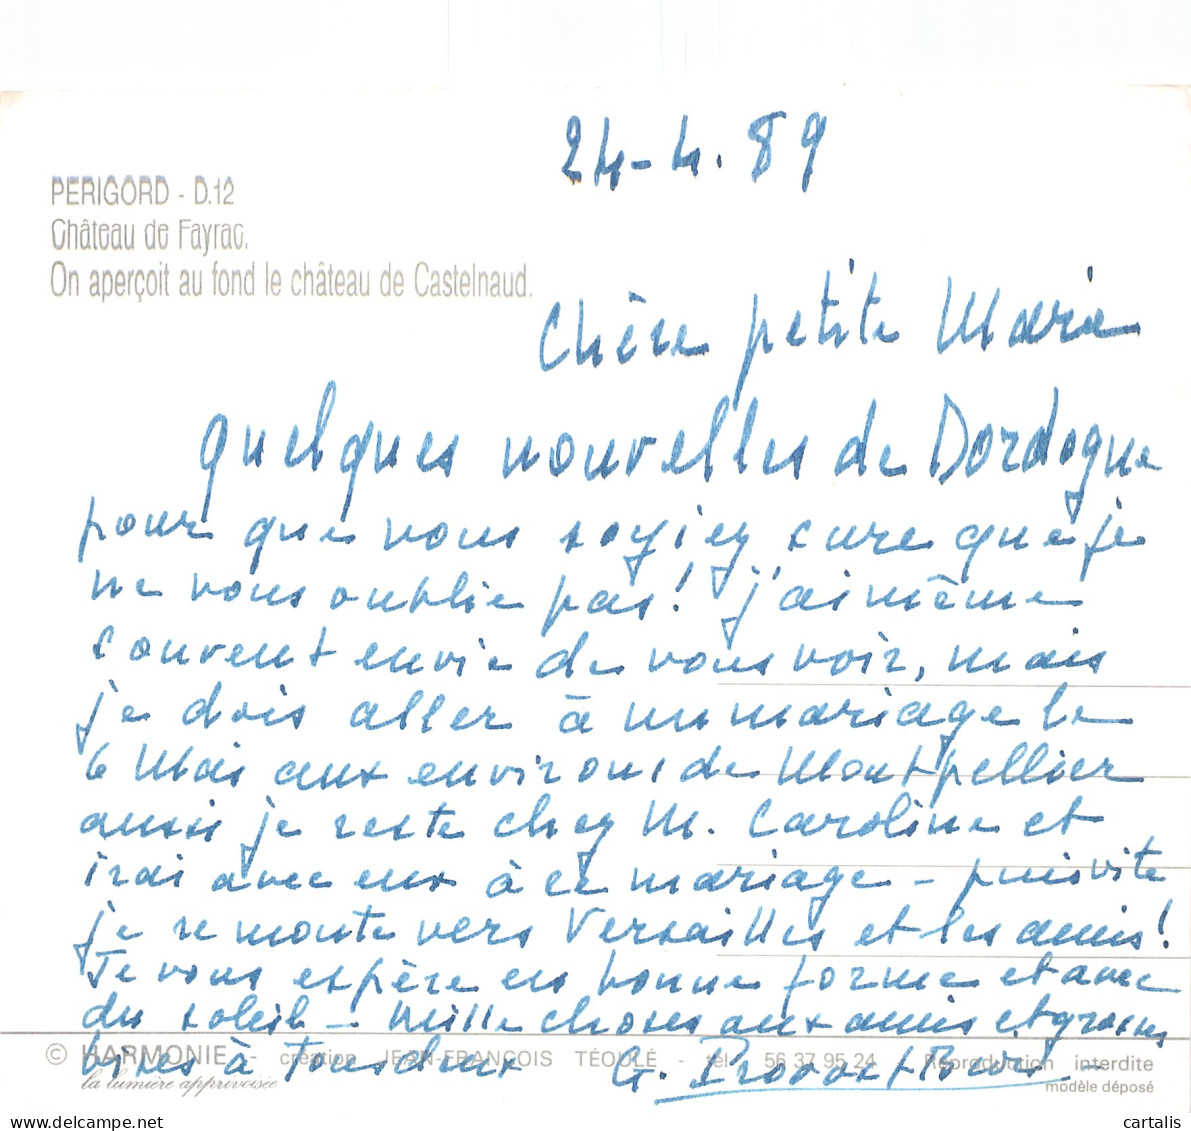 24-4.89
PERIGORD - D.12
Château de Fayrac.
On aperçoit au fond le château de Castelnaud.
Chère petite Marie
quelques nouvelles de Dordogne
pour que vous soyiez sure que je
ne vous oublie pas! j'ai même
souvent envie de vous voir, mais
je dois aller à un mariage le
6 Mai aux environs de Montpellier
aussi je reste chez M. Caroline et
irai avec eux à ce mariage - puis vite
je remonte vers Versailles et les amis!
Je vous espère en bonne forme et avec
du soleil - mille choses aux amis et grosses
bises à tous deux G.
© HARMONIE - création JEAN-FRANÇOIS TÉOULÉ - tél. 56 37 95 24 - Reproduction interdite
la lumière apprivoisée
modèle déposé
cartalis
delcampe.net